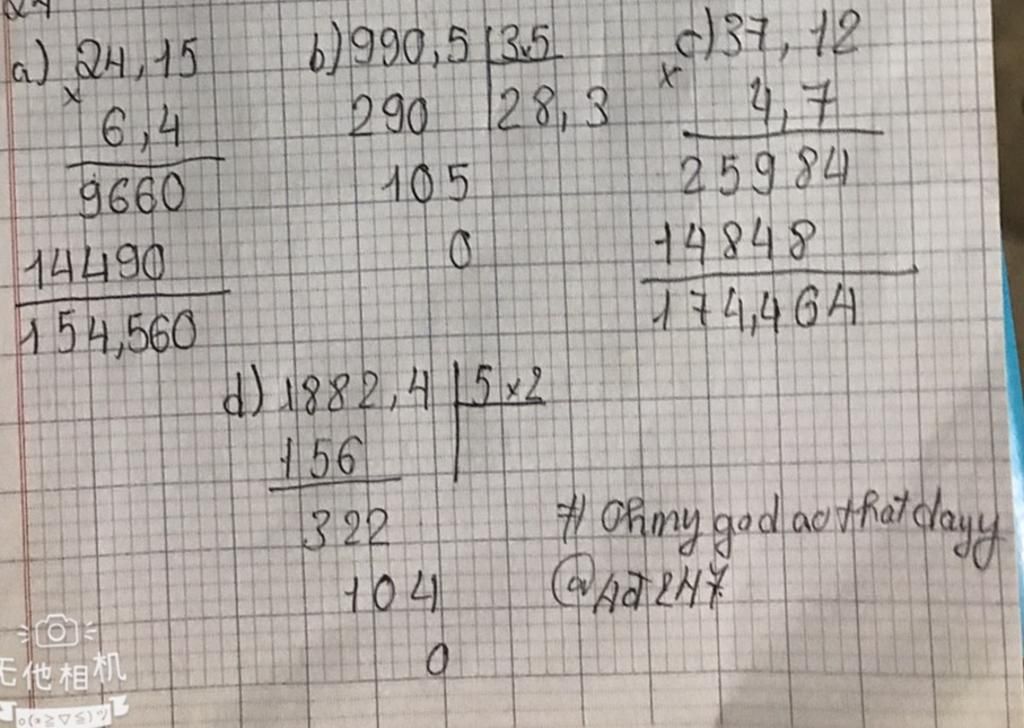 a) 24,15
×
6,4
9660
14490
154,560
b) 990,5 | 3,5
290 | 28,3
105
0
c) 37,12
×
4,7
25984
14848
174,464
d) 1882,4 | 5×2
156
322
104
0
# Ohmygodaothatdayy
无他相机